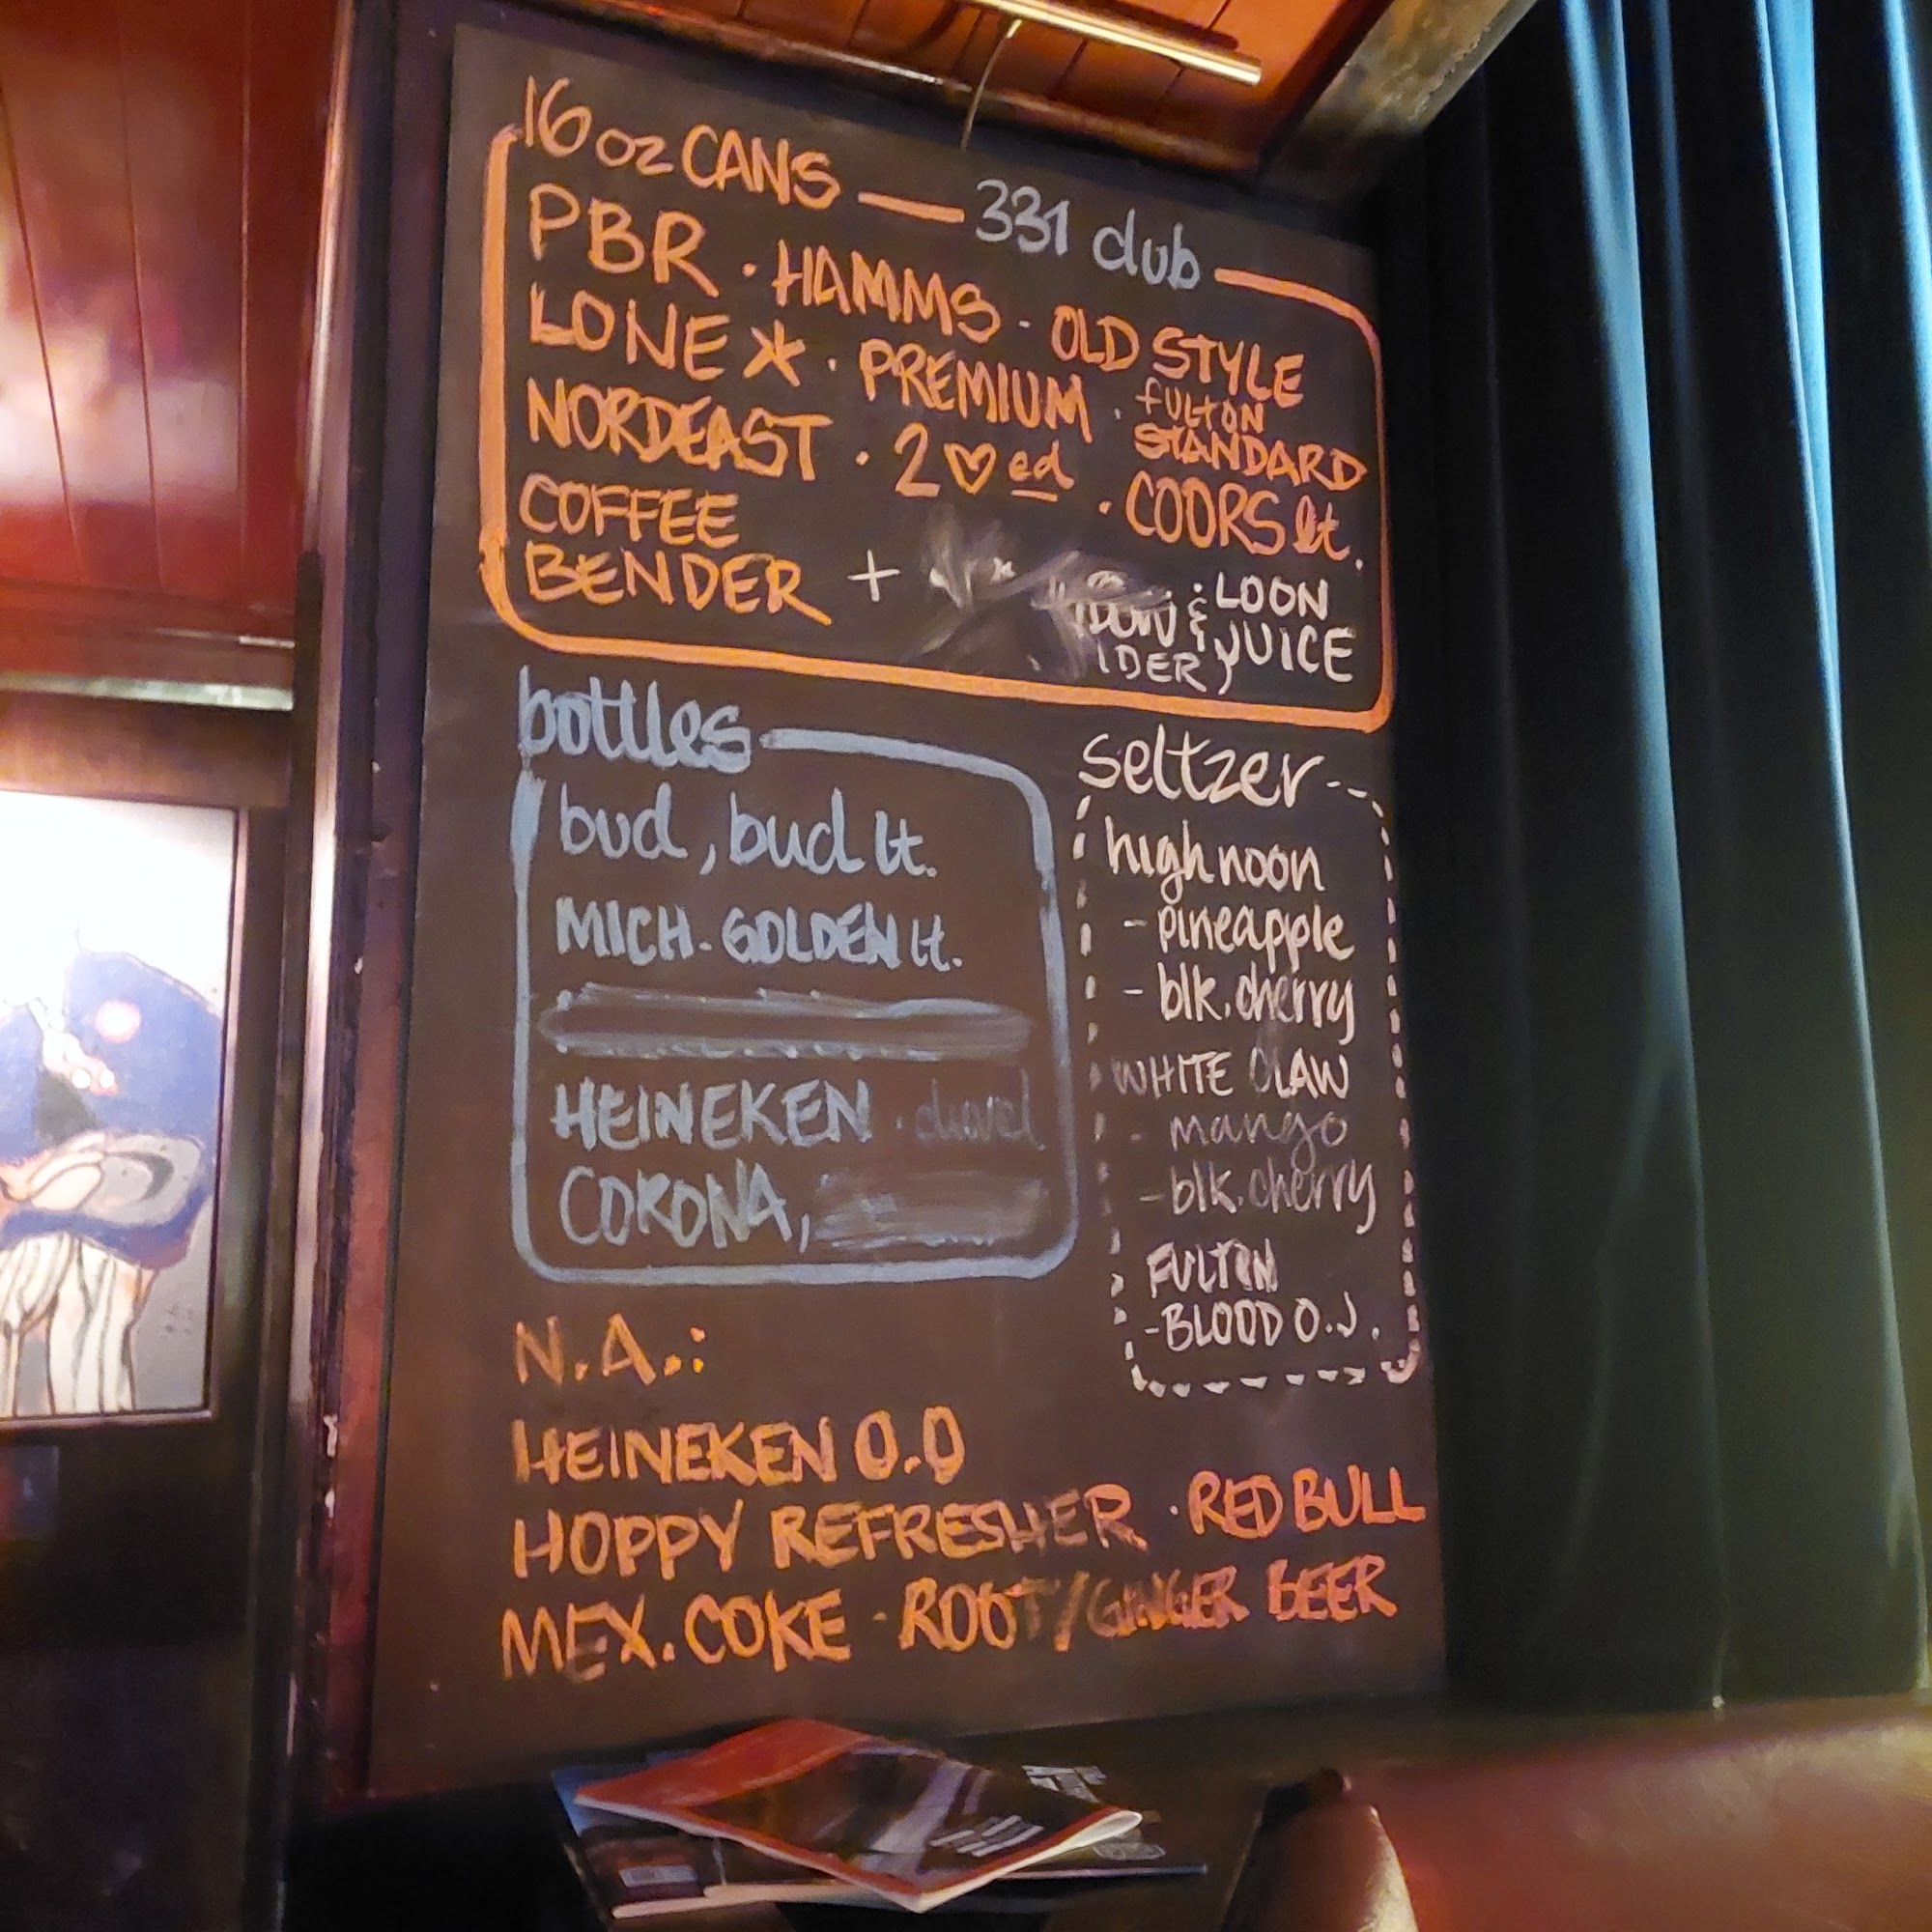 16 oz CANS — 331 club
PBR · HAMMS · OLD STYLE
LONE ★ · PREMIUM · FULTON STANDARD
NORDEAST · 2 ♡ ed · COORS lt.
COFFEE
BENDER + & LOON
JUICE
bottles
bud, bud lt.
MICH. GOLDEN lt.
HEINEKEN ·
CORONA,
seltzer
high noon
- pineapple
- blk. cherry
WHITE CLAW
- mango
- blk. cherry
FULTON
- BLOOD O.J.
N.A.:
HEINEKEN 0.0
HOPPY REFRESHER · RED BULL
MEX. COKE · ROOT/GINGER BEER